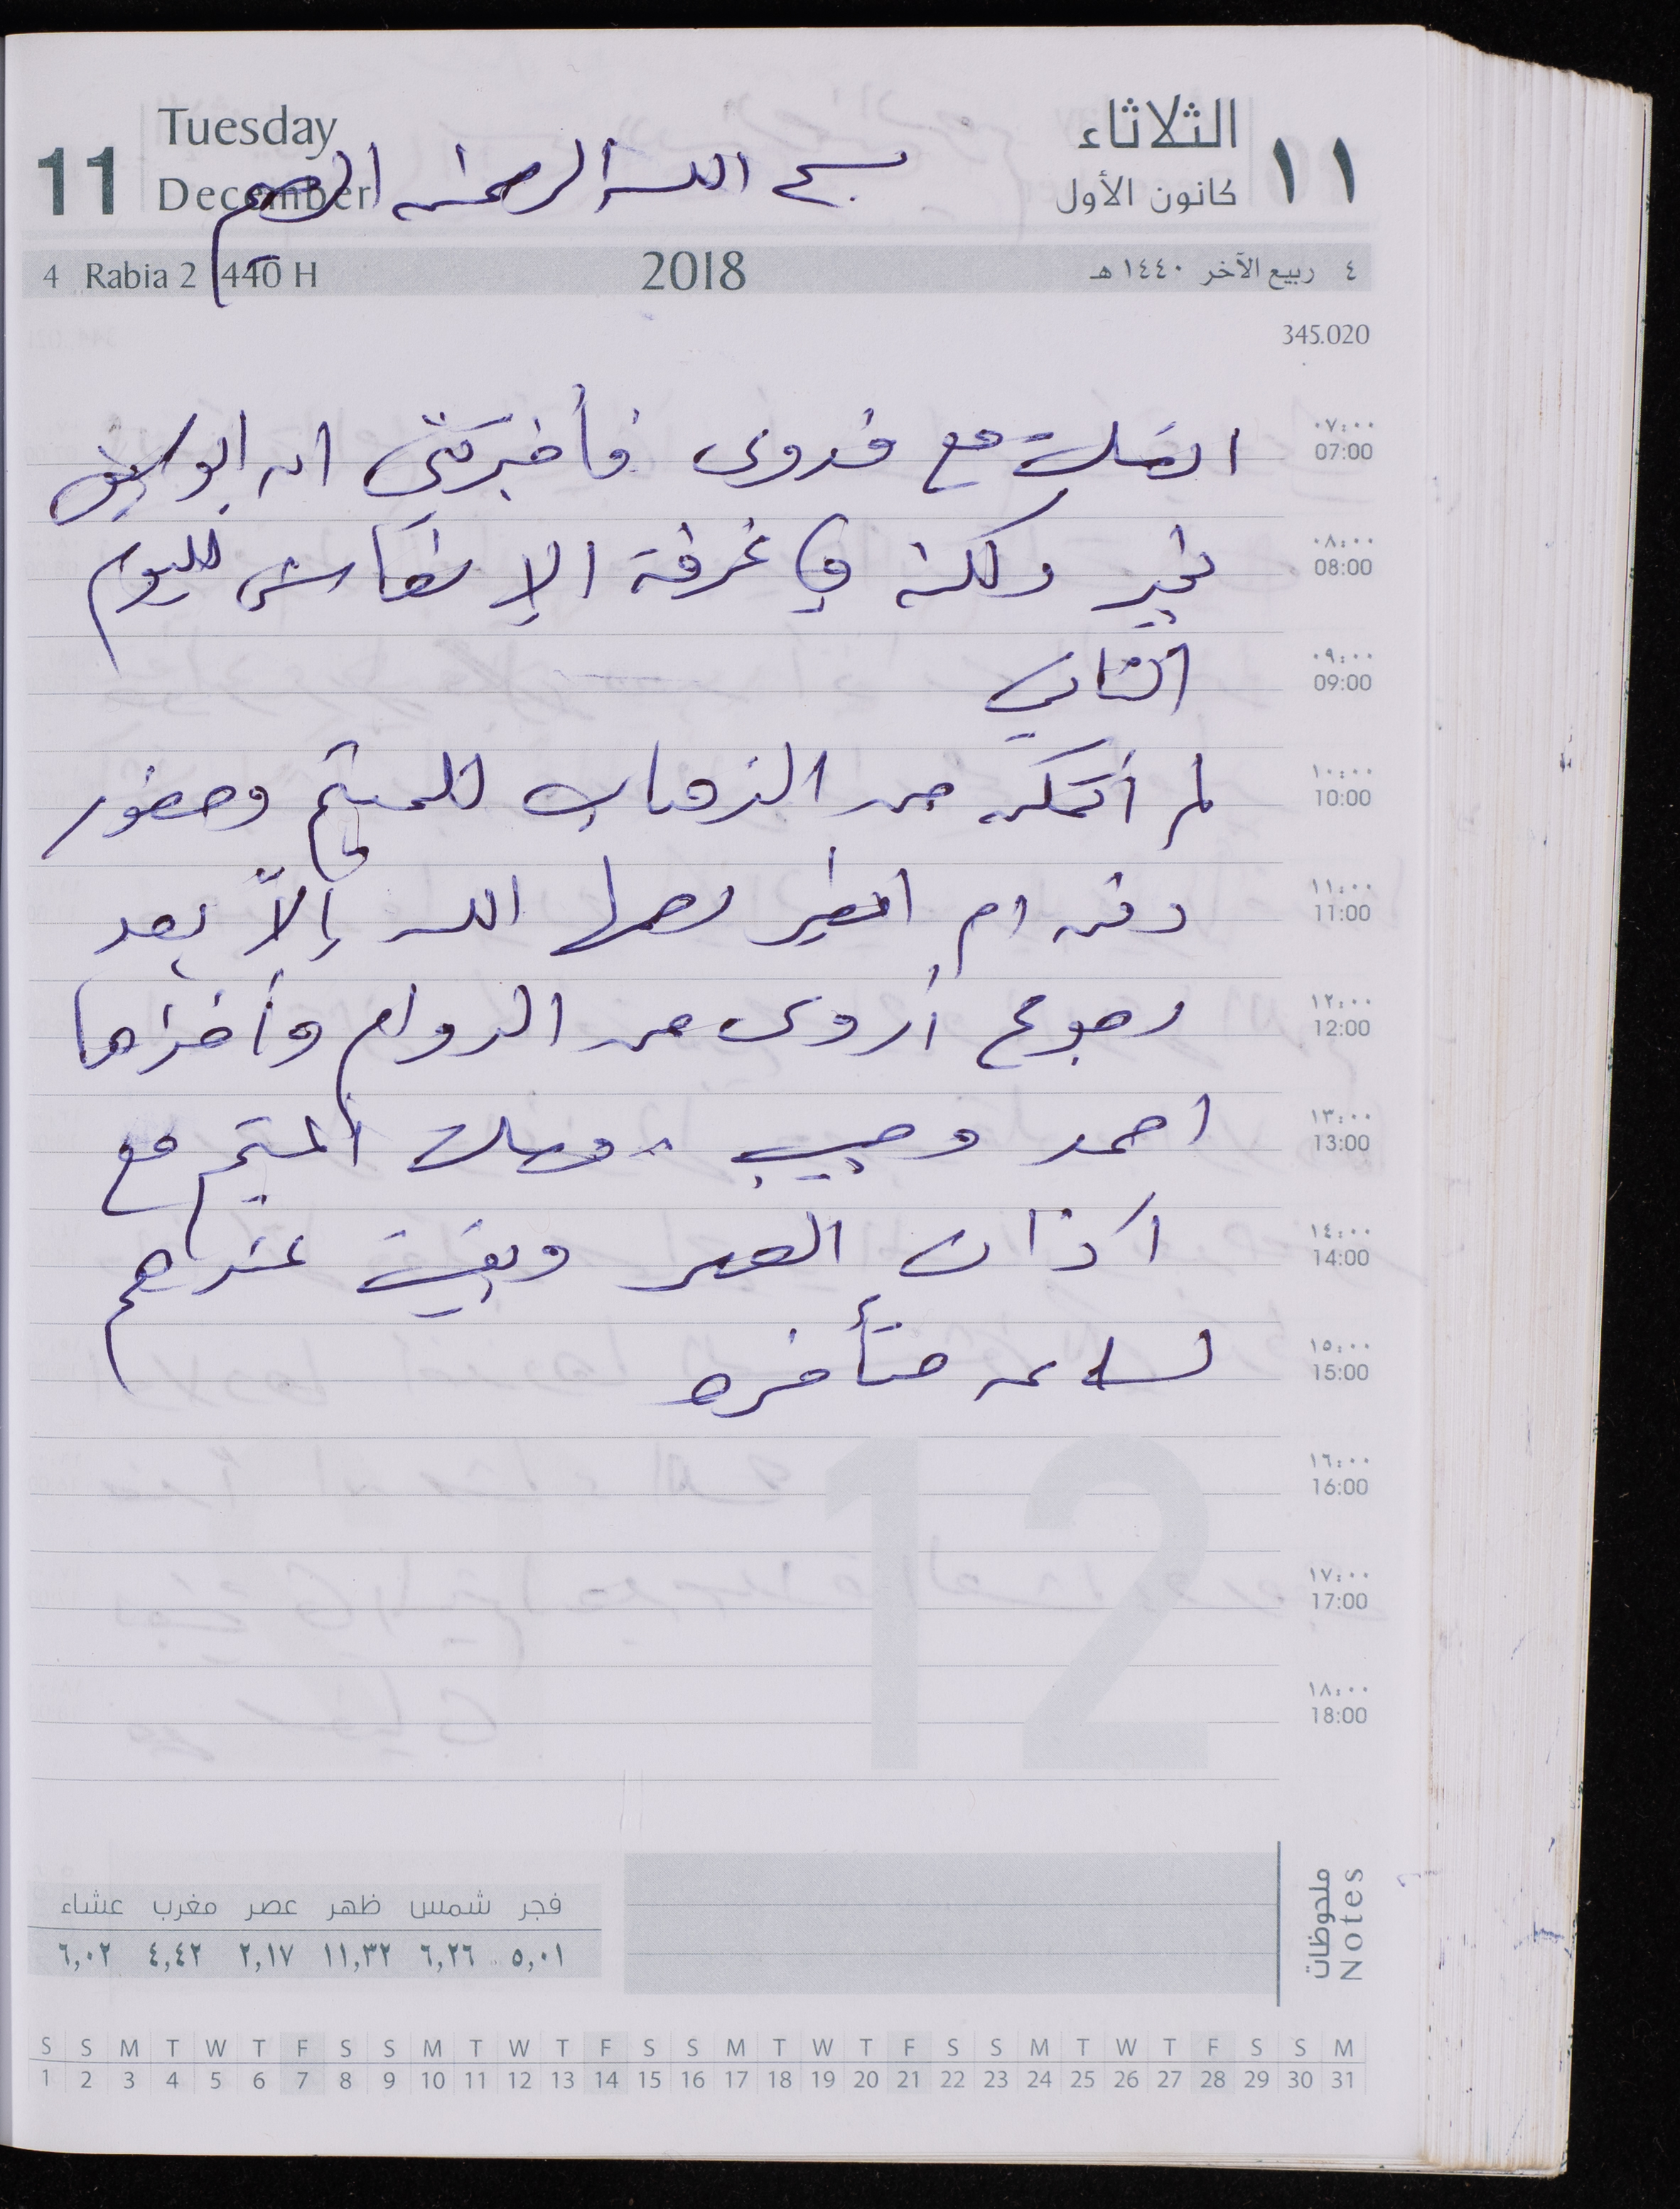 Tuesday
الثلاثاء
11
١١
December
كانون الأول
بسم الله الرحمن الرحيم
4 Rabia 2 1440 H
2018
٤ ربيع الآخر ١٤٤٠ هـ
345.020
٠٧:٠٠
07:00
اتصلت مع فدوى فأخبرتني ان ابو
٠٨:٠٠
08:00
بخير ولكنه في غرفة الإنعاش لليوم
٠٩:٠٠
09:00
الثاني
١٠:٠٠
10:00
لم أتمكن من الذهاب للميتم وحضور
١١:٠٠
11:00
دفن ام رحمها الله إلاّ بعد
١٢:٠٠
12:00
رجوع أروى من الدوام وأخذها
١٣:٠٠
13:00
احمد وحبيب .. وصلت الميتم مع
١٤:٠٠
14:00
اذان العصر وبقيت عندهم
١٥:٠٠
15:00
لساعه متأخره
١٦:٠٠
16:00
١٧:٠٠
17:00
١٨:٠٠
18:00
12
ملحوظات
Notes
فجر شمس ظهر عصر مغرب عشاء
٥,٠١ ٦,٢٦ ١١,٣٢ ٢,١٧ ٤,٤٢ ٦,٠٢
S S M T W T F S S M T W T F S S M T W T F S S M T W T F S S M
1 2 3 4 5 6 7 8 9 10 11 12 13 14 15 16 17 18 19 20 21 22 23 24 25 26 27 28 29 30 31